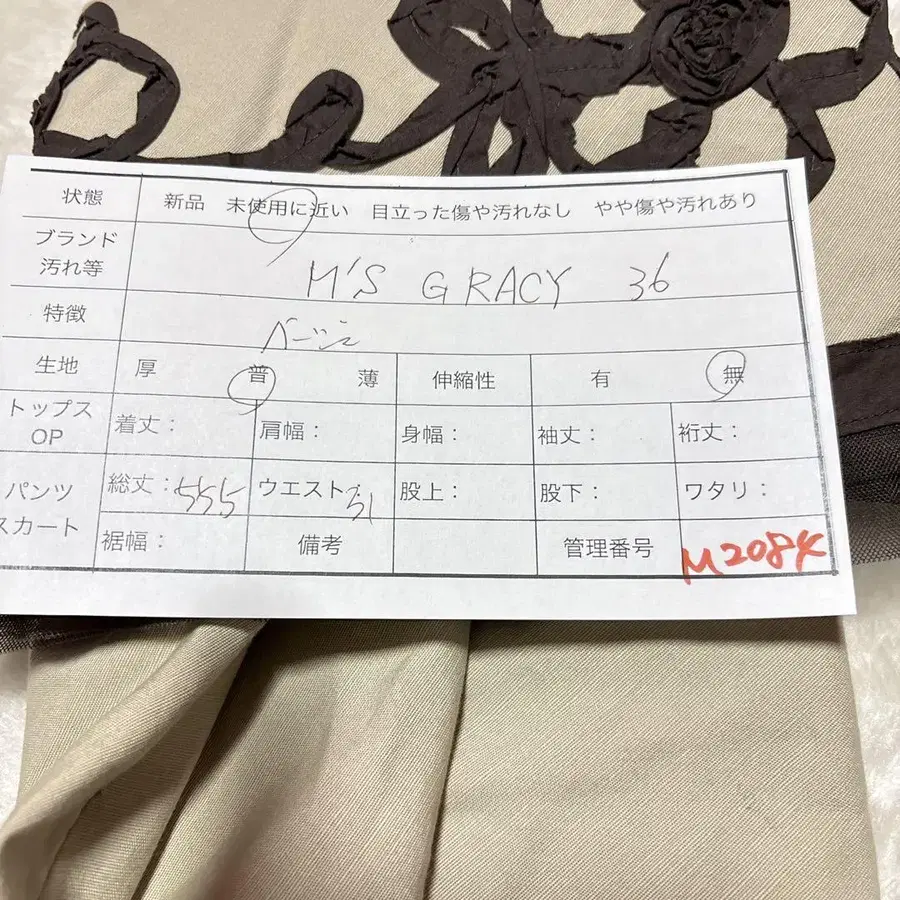 状態 新品 未使用に近い 目立った傷や汚れなし やや傷や汚れあり
ブランド
汚れ等
M'S GRACY 36
特徴 ベージュ
生地 厚 普 薄 伸縮性 有 無
トップス
OP
着丈: 肩幅: 身幅: 袖丈: 裄丈:
パンツ
スカート
総丈:55.5 ウエスト:31 股上: 股下: ワタリ:
裾幅: 備考 管理番号 M2084